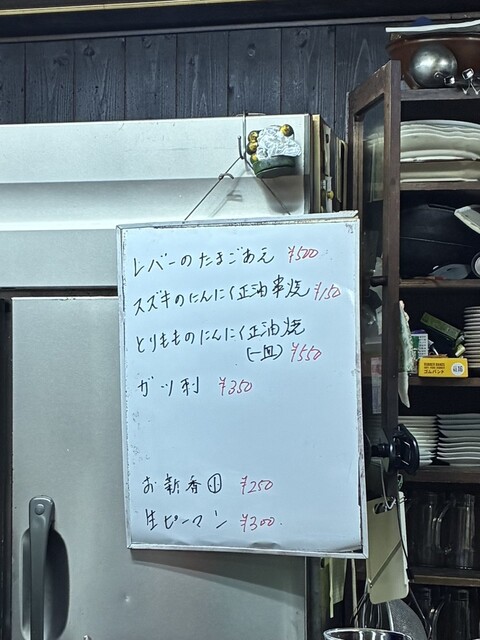 レバーのたまごあえ ¥500
スズキのにんにく正油串焼 ¥150
とりもものにんにく正油焼
(一皿) ¥550
ガツ刺 ¥350
お新香小 ¥250
生ピーマン ¥300
ゴムバンド